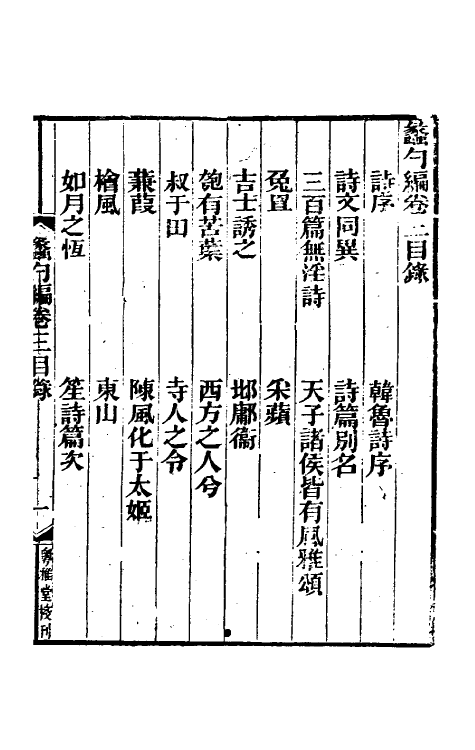 蠡勺編卷二目錄
詩序　韓魯詩序
詩文同異　詩篇別名
三百篇無淫詩　天子諸侯皆有風雅頌
兔罝　釆蘋
吉士誘之　邶鄘衞
匏有苦葉　西方之人兮
叔于田　寺人之令
蒹葭　陳風化于太姬
檜風　東山
如月之恆　笙詩篇次
蠡勺編卷二目錄　一　粵雅堂校刊